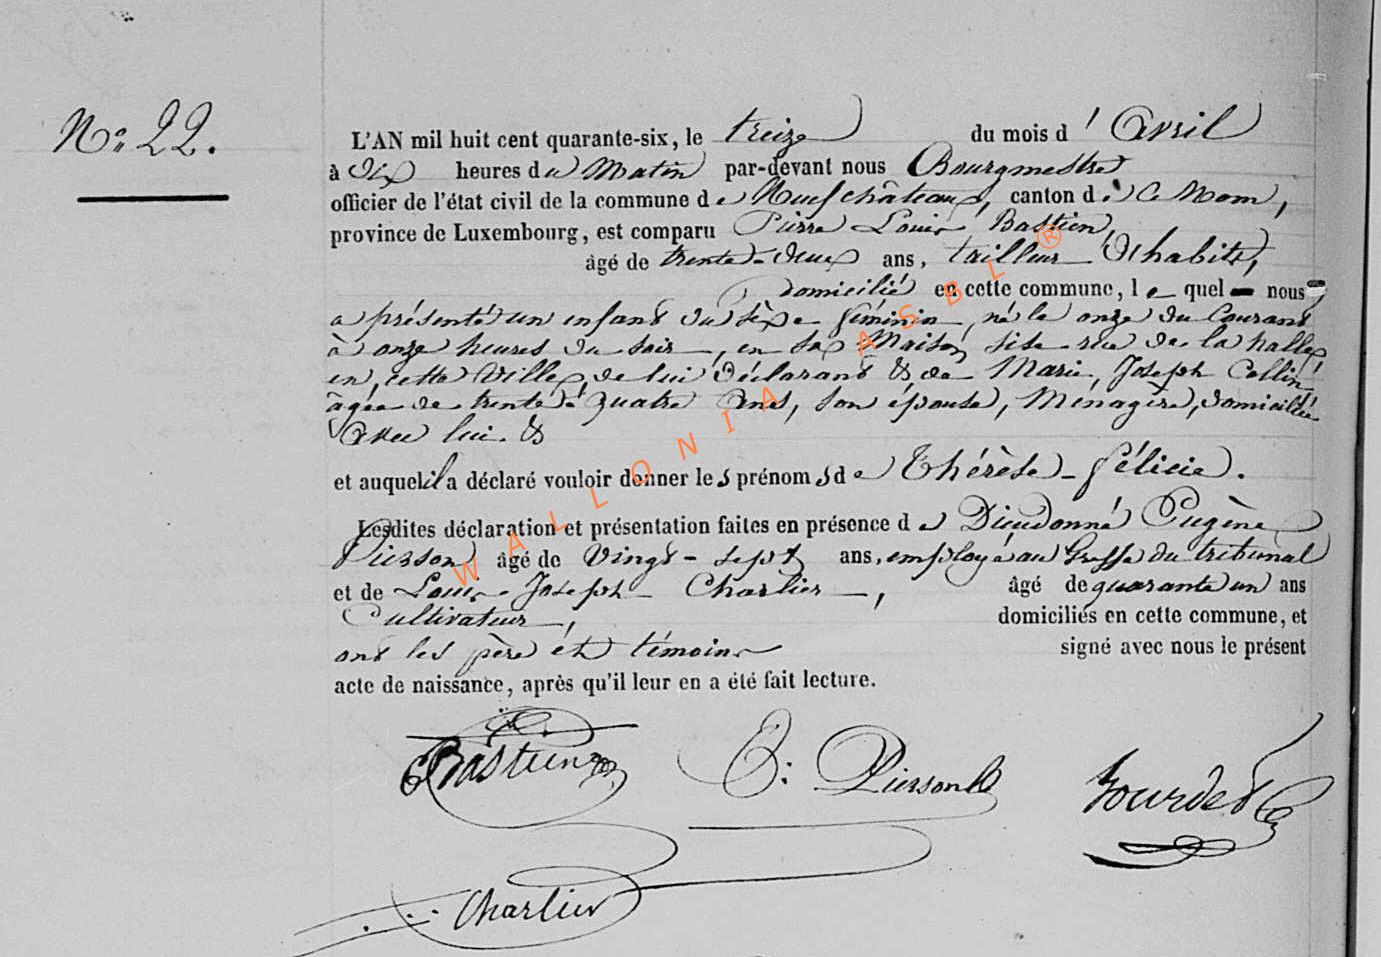 N.o 22.
L'AN mil huit cent quarante-six, le treize du mois d'Avril
à dix heures du Matin par-devant nous Bourgmestre
officier de l'état civil de la commune de Neufchâteau, canton de Ce Nom,
province de Luxembourg, est comparu Pierre Louis Bastien,
âgé de trente-deux ans, tailleur d'habits,
domicilié en cette commune, lequel nous
a présenté un enfant du sèxe féminin, né le onze du Courant
à onze heures du soir, en sa Maison sise rue de la halle,
en cette Ville, de lui Déclarant & de Marie, Joseph Collin,
âgée de trente-quatre Ans, son épouse, Ménagère, domiciliée
Avec lui. &
et auquel il a déclaré vouloir donner les prénoms de Thérèse-Félicie.
Lesdites déclaration et présentation faites en présence de Dieudonné Eugène
Pierson âgé de Vingt-sept ans, employé au Greffe du tribunal
et de Louis-Joseph Charlier, âgé de quarante un ans
Cultivateur, domiciliés en cette commune, et
ont les père et témoins signé avec nous le présent
acte de naissance, après qu'il leur en a été fait lecture.
Bastien
E: Pierson
Charlier
WALLONIA ASBL ®